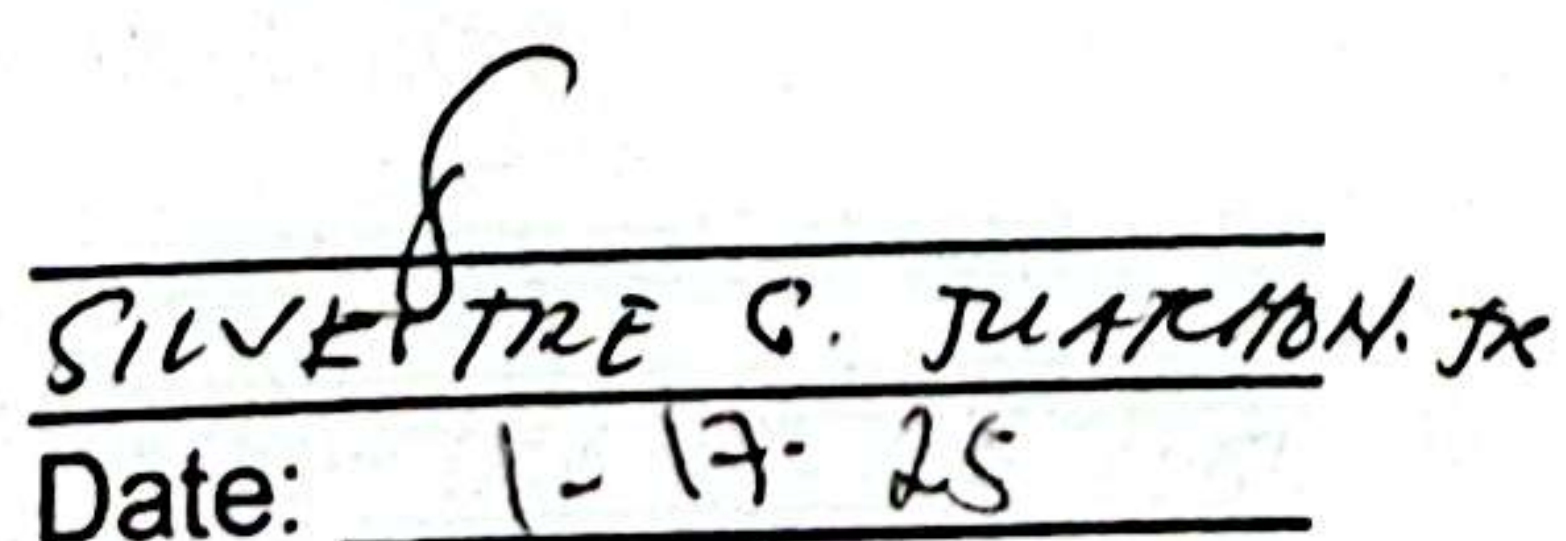 SILVESTRE S. JUARCHON. JR
Date: 1-17-25